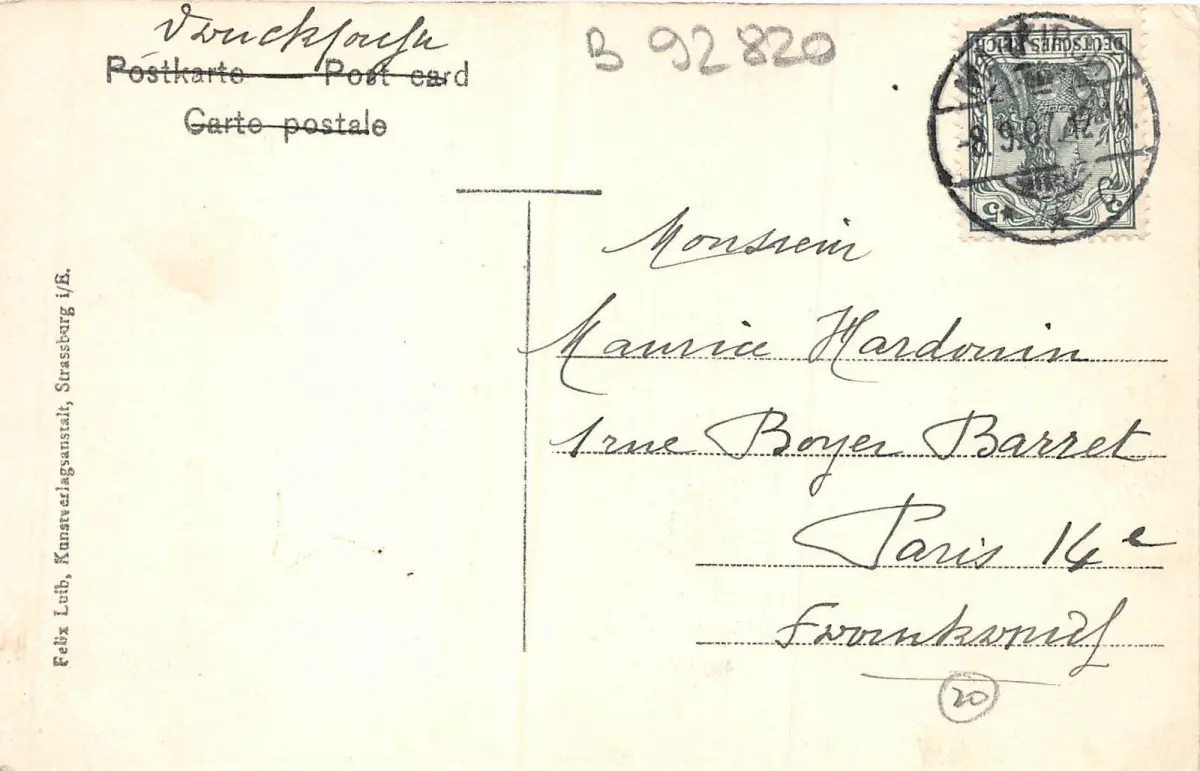 Drucksache
Postkarte — Post card
Carte postale
B 92820
DEUTSCHES REICH
8.9.07.12
5
5
c
Monsieur
Maurice Hardouin
1 rue Boyer Barret
Paris 14e
Frankreich
20
Felix Luib, Kunstverlagsanstalt, Strassburg i/E.